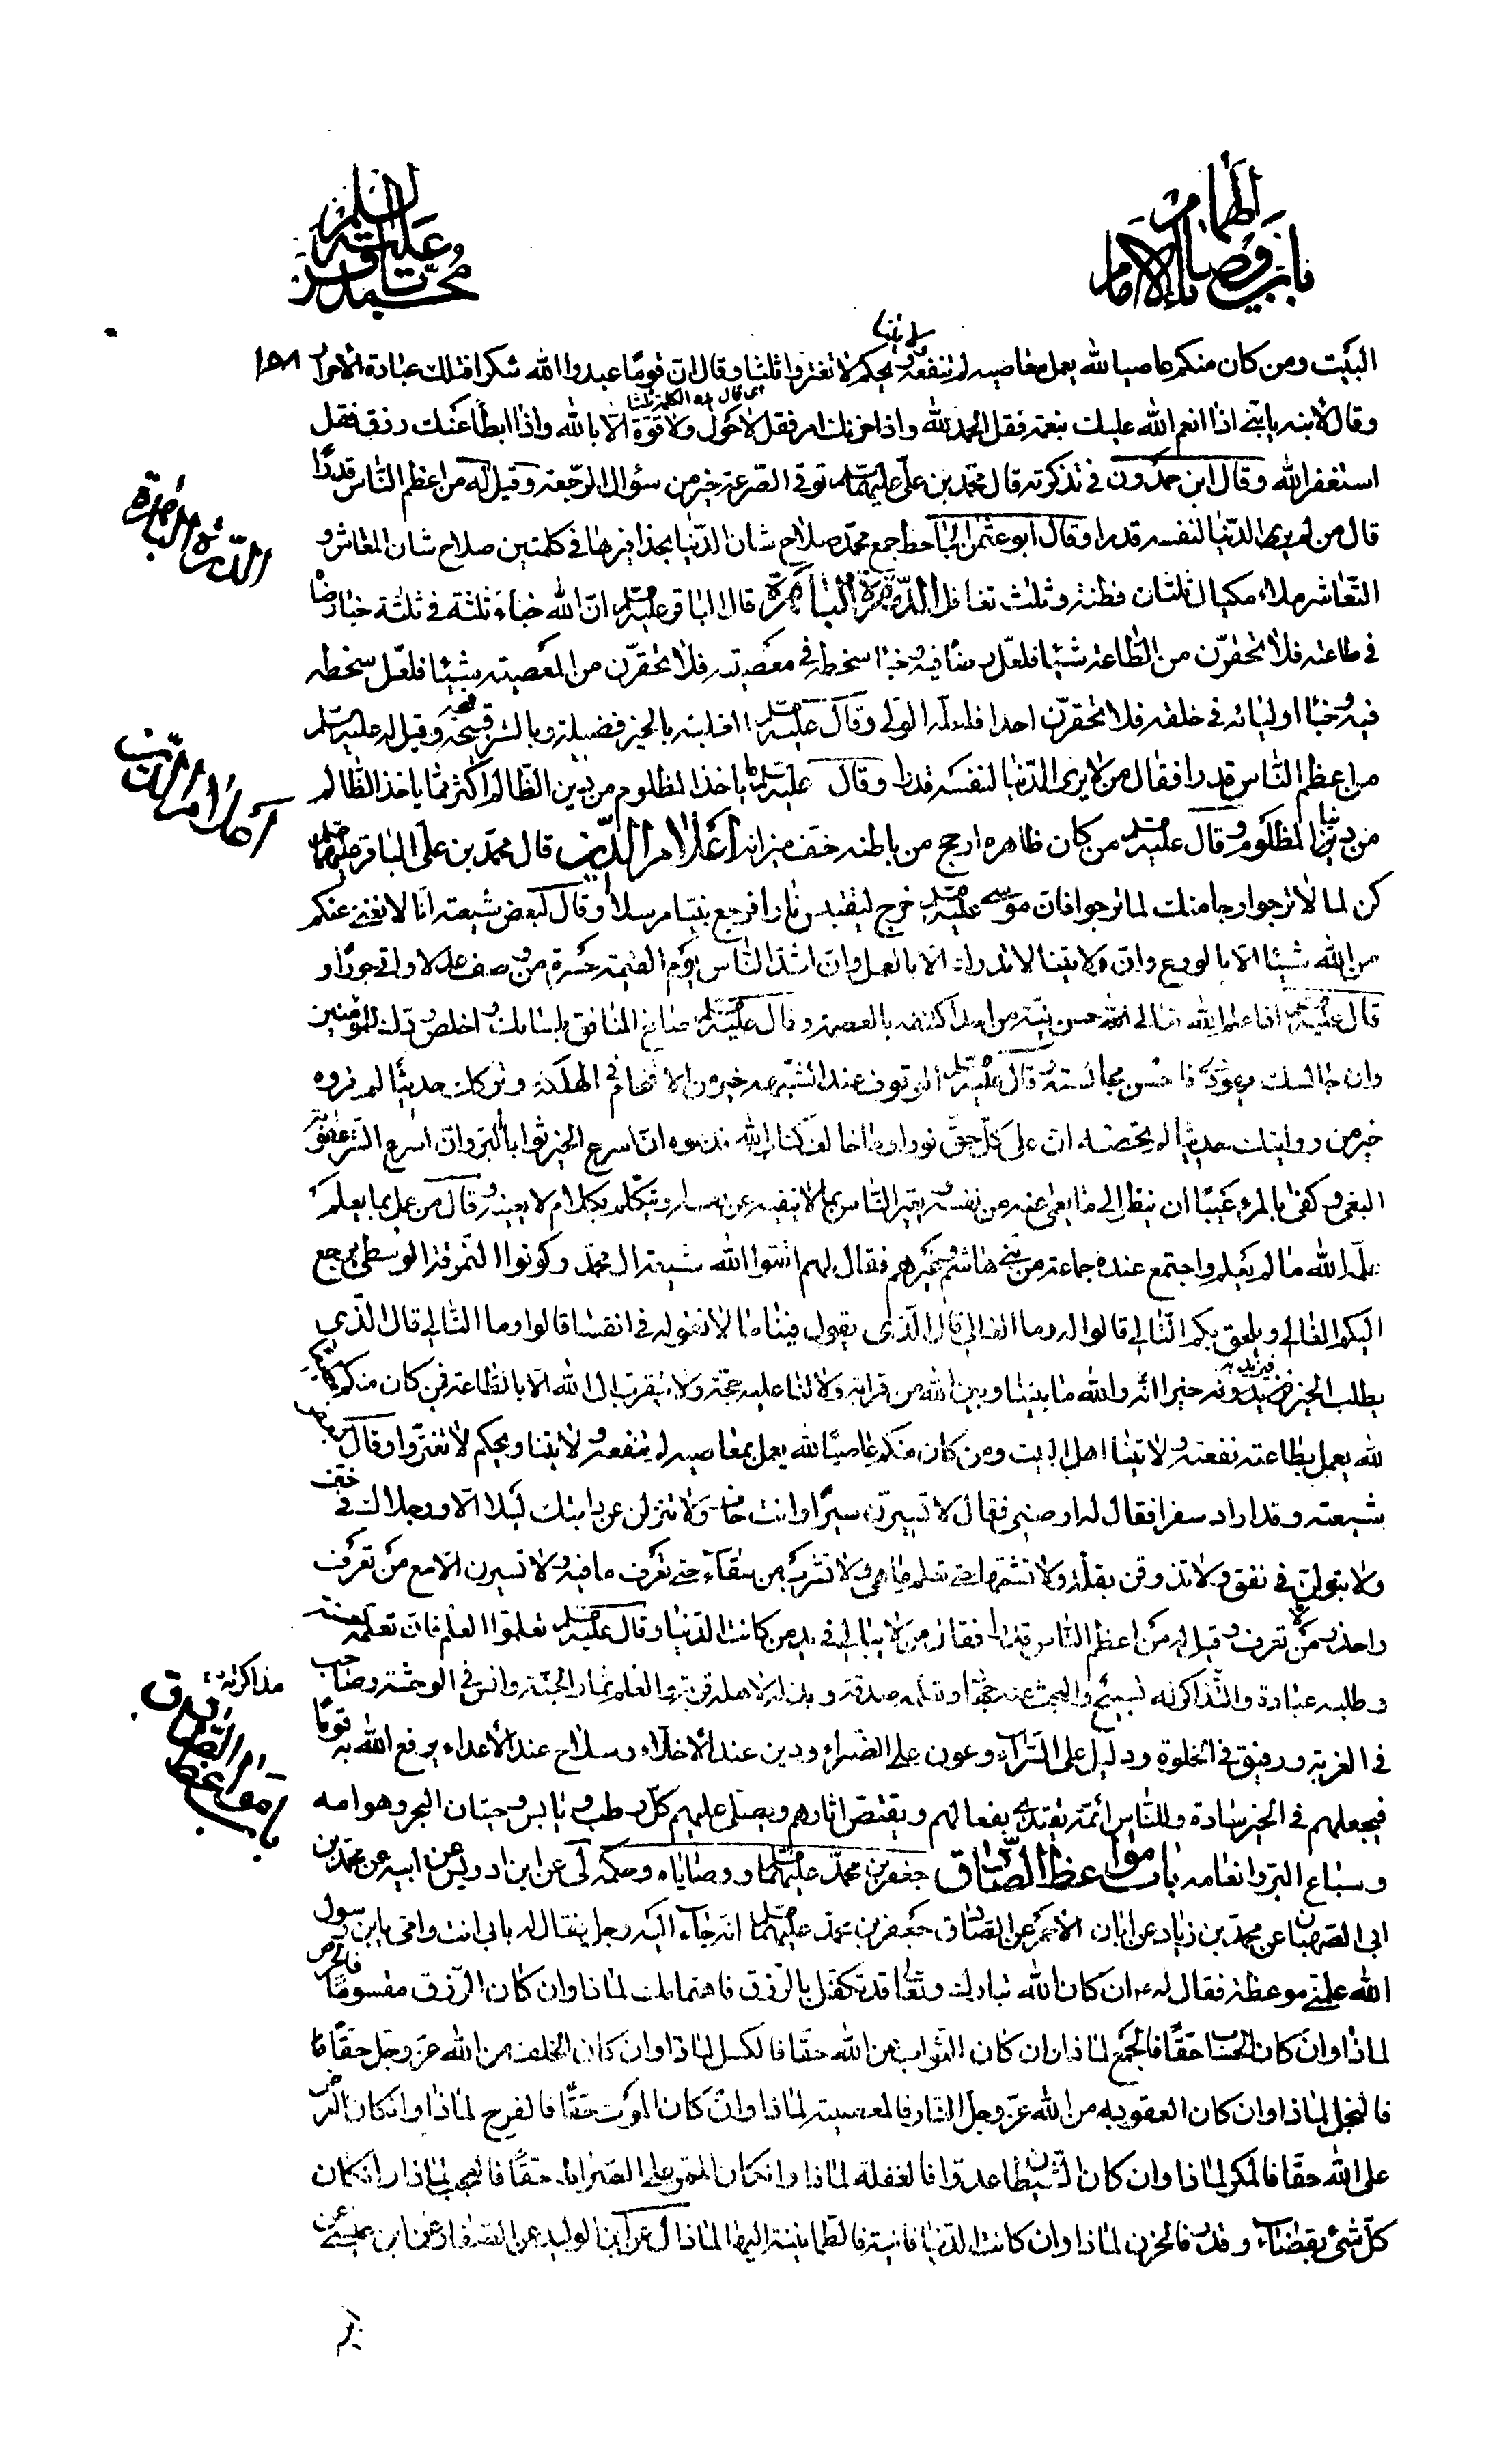 باب وصايا الإمام الهمام
محمد باقر عليه السلم
البيت ومن كان منكم عاصيا لله يعمل معاصيه لم تنفعه ولايتنا ويحكم لا تغتروا ثلثا وقال ان قوما عبدوا الله شكرا فتلك عبادة الاحرار
وقال لابنه يا بنى اذا انعم الله عليك بنعمة فقل الحمد لله واذا احزنك امر فقل لا حول ولا قوة الا بالله واذا ابطأ عنك رزق فقل
استغفر الله وقال ابن حمدون فى تذكرته قال محمد بن على عليهما السلم توقى الصرعة خير من سؤال الرجعة وقيل له من اعظم الناس قدرا
قال من لم ير الدنيا لنفسه قدرا وقال ابو عثمن الجاحظ جمع محمد صلاح شان الدنيا بحذافيرها فى كلمتين صلاح شان المعاش و
التعاشر ملاء مكيال ثلثان فطنة وثلث تغافل الدرة الباهرة قال الباقر عليه السلم ان الله خباء ثلثة فى ثلثة خبا رضاه
فى طاعته فلا تحقرن من الطاعة شيئا فلعل رضاه فيه وخبا سخطه فى معصيته فلا تحقرن من المعصية شيئا فلعل سخطه
فيه وخبا اولیائه فى خلقه فلا تحقرن احدا فلعله الولى وقال عليه السلم الغلبة بالخير فضيلة وبالشر قبيحة وقيل له عليه السلم
من اعظم الناس قدرا فقال من لا يرى الدنيا لنفسه قدرا وقال عليه السلم ما ياخذ المظلوم من دين الظالم اكثر مما ياخذ الظالم
من دنيا المظلوم وقال عليه السلم من كان ظاهره ارجح من باطنه خف ميزانه اعلام الدين قال محمد بن على الباقر عليهما السلم
كن لما لا ترجو ارجا منك لما ترجوا فان موسى عليه السلم خرج ليقتبس نارا فرجع نبيا مرسلا وقال لبعض شيعته انا لا نغنى عنكم
من الله شيئا الا بالورع وان ولايتنا لا تدرك الا بالعمل وان اشد الناس يوم القيمة حسرة من وصف عدلا واتى جورا و
قال عليه السلم اذا علم الله تعالى حسن نية من احد اكتنفه بالعصمة وقال عليه السلم صانع المنافق بلسانك واخلص ودك للمؤمنين
وان جالسك يهودى فاحسن مجالسته وقال عليه السلم الوقوف عند الشبهة خير من الاقتحام فى الهلكة وتركك حديثا لم تروه
خير من روايتك حديثا لم تحصه ان على كل حق نورا وما خالف كتاب الله فدعوه ان اسرع الخير ثوابا البر وان اسرع الشر عقوبة
البغى وكفى بالمرء عيبا ان ينظر الى ما يعمى عنه من نفسه ويعير الناس بما لا ينفيه عن نفسه او يتكلم بكلام لا يعنيه وقال من عمل بما يعلم
علمه الله ما لم يعلم واجتمع عنده جماعة من بنى هاشم وغيرهم فقال لهم اتقوا الله شيعة ال محمد وكونوا النمرقة الوسطى يرجع
اليكم الغالى ويلحق بكم التالى قالوا له وما الغالى قال الذى يقول فينا ما لا نقوله فى انفسنا قالوا وما التالى قال الذى
يطلب الخير فيزيد به خيرا انه والله ما بيننا وبين الله من قرابة ولا لنا عليه حجة ولا يتقرب الى الله الا بالطاعة فمن كان منكم مطيعا
لله يعمل بطاعته نفعته ولايتنا اهل البيت ومن كان منكم عاصيا لله يعمل بمعاصيه لم ينفعه ولايتنا ويحكم لا تغتروا وقال لبعض
شيعته وقد اراد سفرا فقال له اوصنى فقال لا تسيرن سيرا وانت حاف ولا تنزلن عن دابتك ليلا الا ورجلاك فى خف
ولا تبولن فى نفق ولا تذوقن بقلة ولا تشمها حتى تعلم ما هى ولا تشرب من سقاء حتى تعرف ما فيه ولا تسيرن الا مع من تعرف
واحذر من لا تعرف وقيل له من اعظم الناس قدرا فقال من لا يبالى فى يد من كانت الدنيا وقال عليه السلم تعلموا العلم فان تعلمه حسنة
وطلبه عبادة والتذاكر له تسبيح والبحث عنه جهاد وتعليمه صدقة وبذله لاهله قربة والعلم ثمار الجنة وانس فى الوحشة وصاحب
فى الغربة ورفيق فى الخلوة ودليل على السراء وعون على الضراء ودين عند الاخلاء وسلاح عند الاعداء يرفع الله به قوما
فيجعلهم فى الخير سادة وللناس ائمة يقتدى بفعالهم ويقتص اثارهم ويصلى عليهم كل رطب ويابس وحيتان البحر وهوامه
وسباع البر وانعامه باب مواعظ الصادق جعفر بن محمد عليهما السلم ووصاياه وحكمه لى عن ابن ادريس عن ابيه عن محمد بن
ابى الصهبان عن محمد بن زياد عن ابان الاحمر عن الصادق جعفر بن محمد عليهما السلم انه جاء اليه رجل فقال له بابى انت وامى يا بن رسول
الله علمنى موعظة فقال له ع ان كان الله تبارك وتعالى قد تكفل بالرزق فاهتمامك لماذا وان كان الرزق مقسوما فالحرص
لماذا وان كان الحساب حقا فالجمع لماذا وان كان الثواب من الله حقا فالكسل لماذا وان كان الخلف من الله عز وجل حقا
فالبخل لماذا وان كان العقوبة من الله عز وجل النار فالمعصية لماذا وان كان الموت حقا فالفرح لماذا وان كان العرض
على الله حقا فالمكر لماذا وان كان الشيطان عدوا فالغفلة لماذا وان كان الممر على الصراط حقا فالعجب لماذا وان كان
كل شىء بقضاء وقدر فالحزن لماذا وان كانت الدنيا فانية فالطمانينة اليها لماذا ل عن ابن الوليد عن الصفار عن ابن عيسى عن
اى قال هذه الكلمة ثلثا
١٥٨
الدرة الباهرة
اعلام الدين
مذاكرته
باب مواعظ الصادق